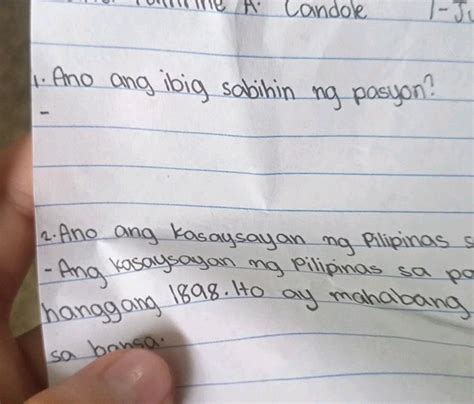 A. Candole 1-J
1. Ano ang ibig sabihin ng pasyon?
-
2. Ano ang kasaysayan ng Pilipinas s
- Ang kasaysayan ng Pilipinas sa pa
hanggang 1898. Ito ay mahabang
sa bansa.